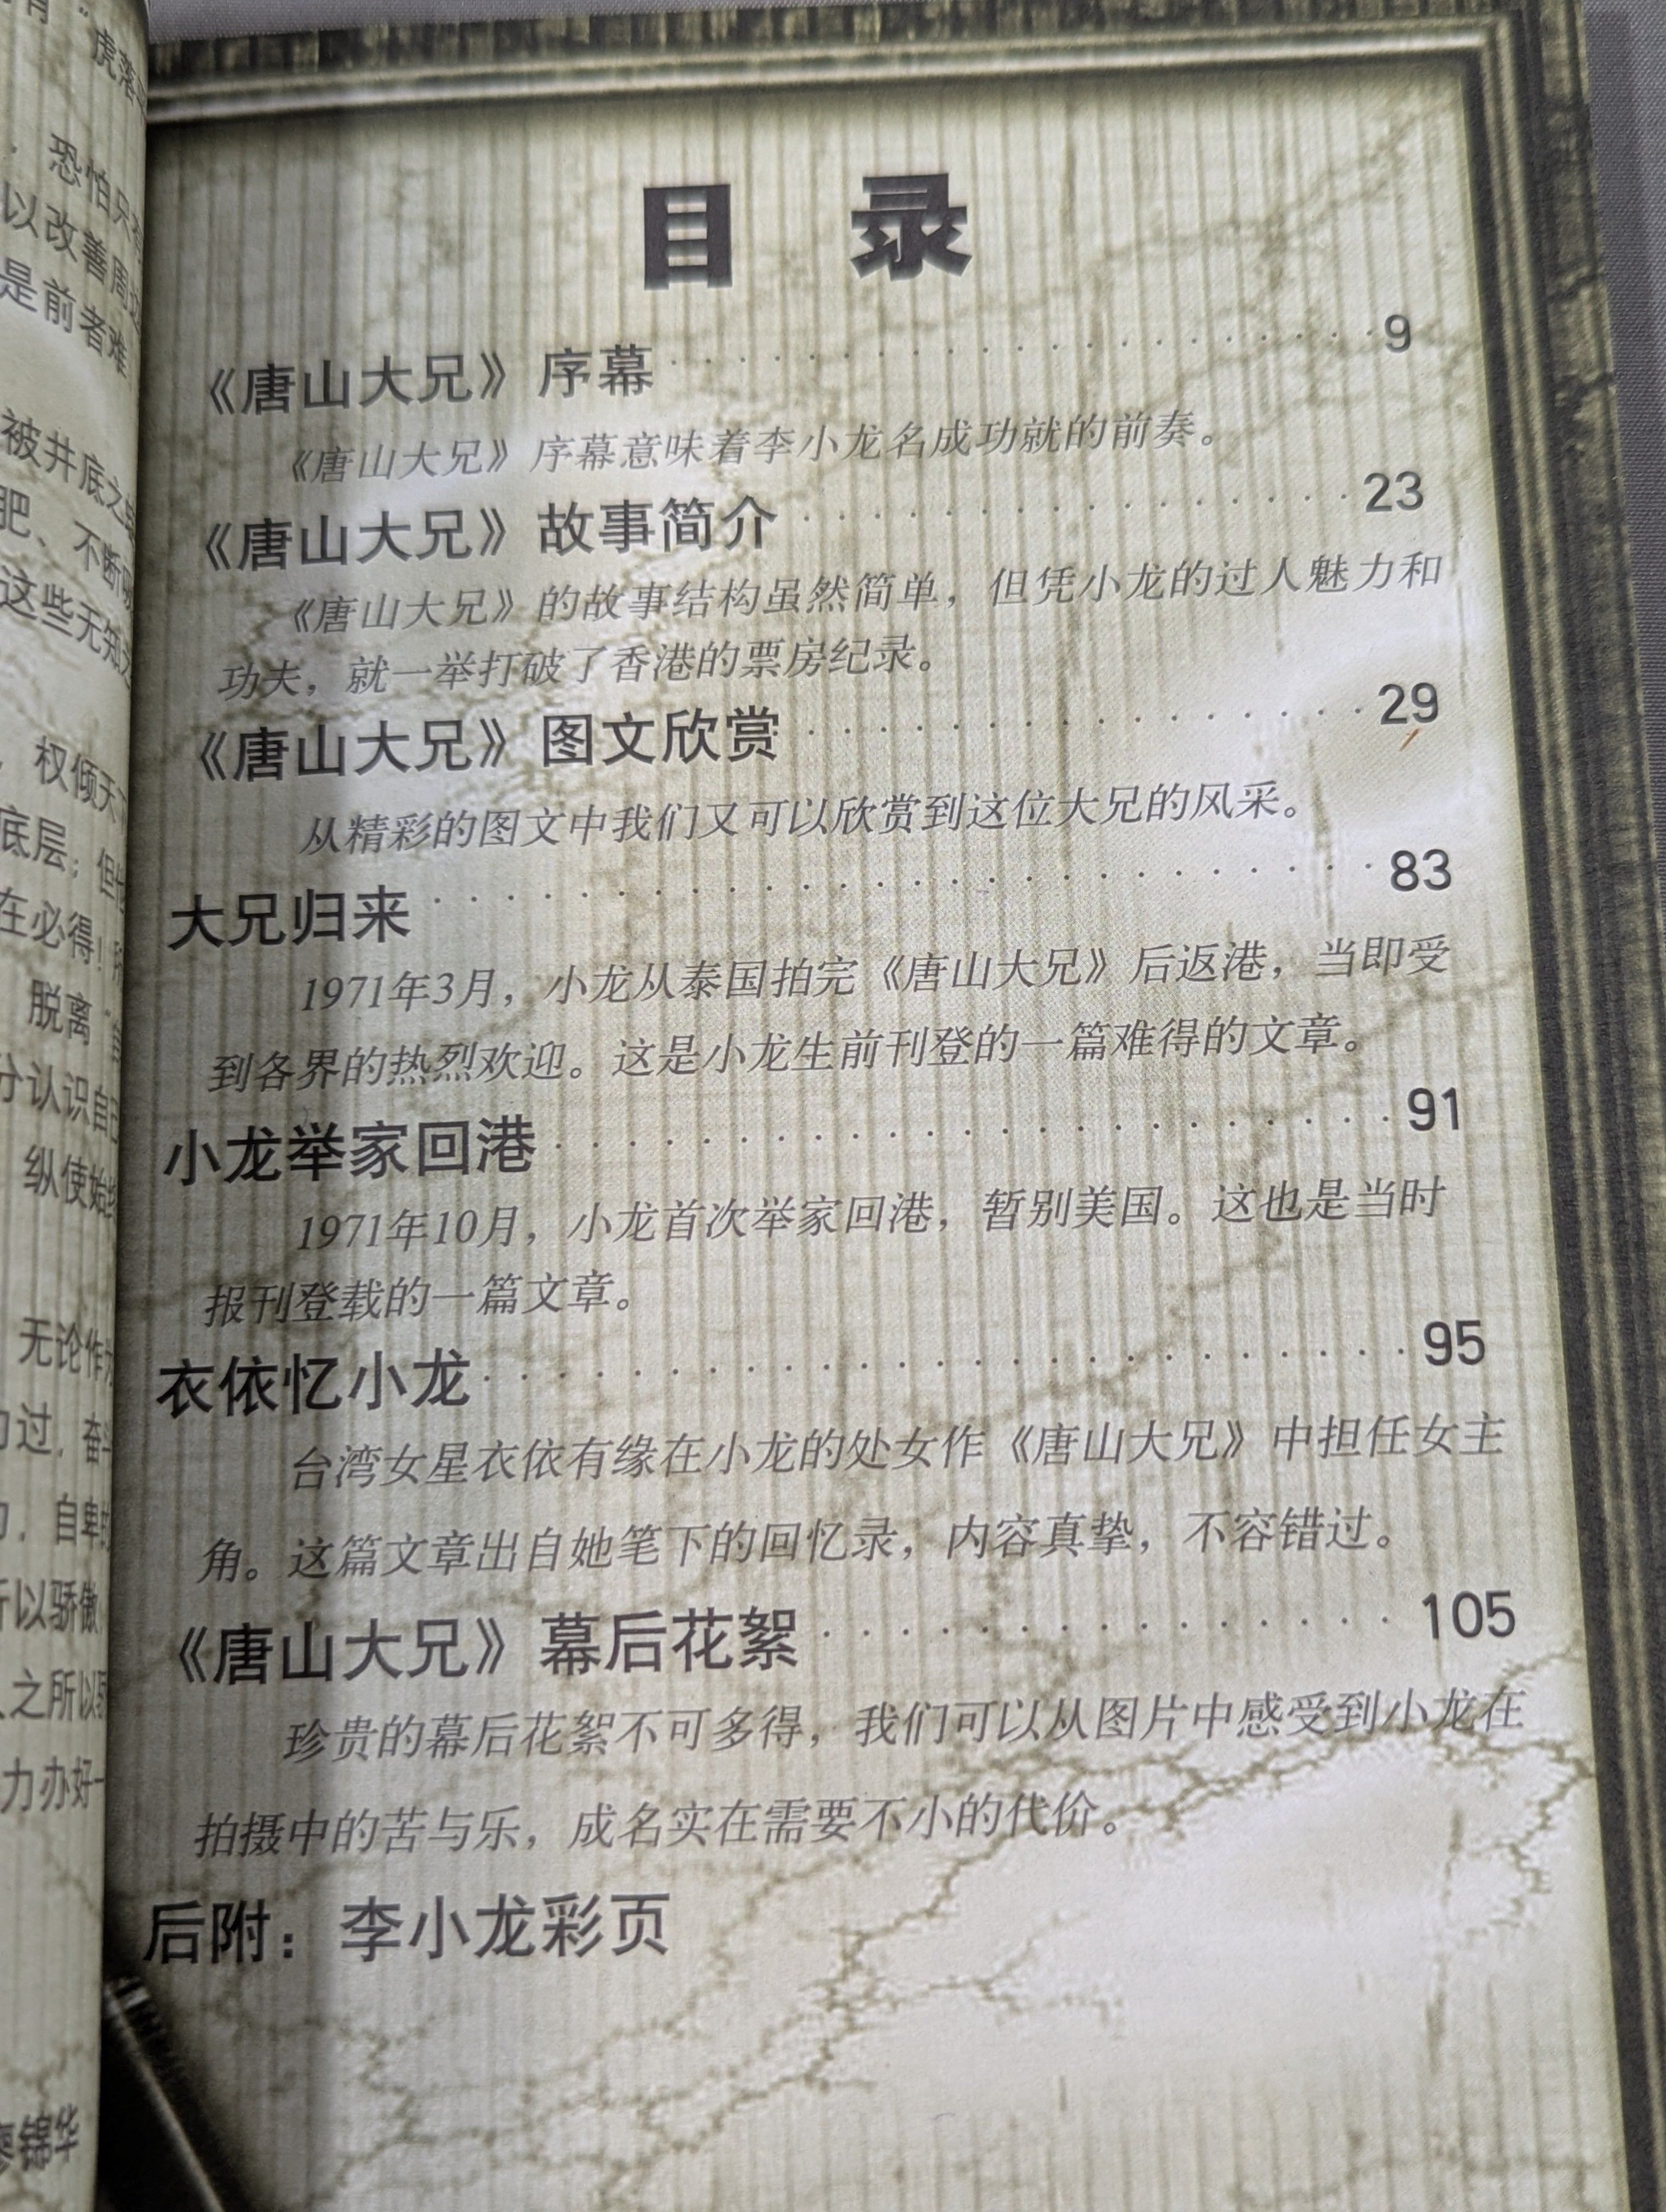 虎落
恐怕只
以改善周
是前者难
被井底之
肥、不断
这些无知
权倾天
底层；但
在必得！
脱离
分认识自己
纵使始
无论作
过，奋
，自卑
所以骄傲
之所以
力办好一
锦华
目 录
《唐山大兄》序幕 · · · · · · · · · · · · · · · · · · · · · 9
《唐山大兄》序幕意味着李小龙名成功就的前奏。
《唐山大兄》故事简介 · · · · · · · · · · · · · · · · · 23
《唐山大兄》的故事结构虽然简单，但凭小龙的过人魅力和
功夫，就一举打破了香港的票房纪录。
《唐山大兄》图文欣赏 · · · · · · · · · · · · · · · · · 29
从精彩的图文中我们又可以欣赏到这位大兄的风采。
大兄归来 · · · · · · · · · · · · · · · · · · · · · · · · · · 83
1971年3月，小龙从泰国拍完《唐山大兄》后返港，当即受
到各界的热烈欢迎。这是小龙生前刊登的一篇难得的文章。
小龙举家回港 · · · · · · · · · · · · · · · · · · · · · · · 91
1971年10月，小龙首次举家回港，暂别美国。这也是当时
报刊登载的一篇文章。
衣依忆小龙 · · · · · · · · · · · · · · · · · · · · · · · · 95
台湾女星衣依有缘在小龙的处女作《唐山大兄》中担任女主
角。这篇文章出自她笔下的回忆录，内容真挚，不容错过。
《唐山大兄》幕后花絮 · · · · · · · · · · · · · · · · 105
珍贵的幕后花絮不可多得，我们可以从图片中感受到小龙在
拍摄中的苦与乐，成名实在需要不小的代价。
后附：李小龙彩页